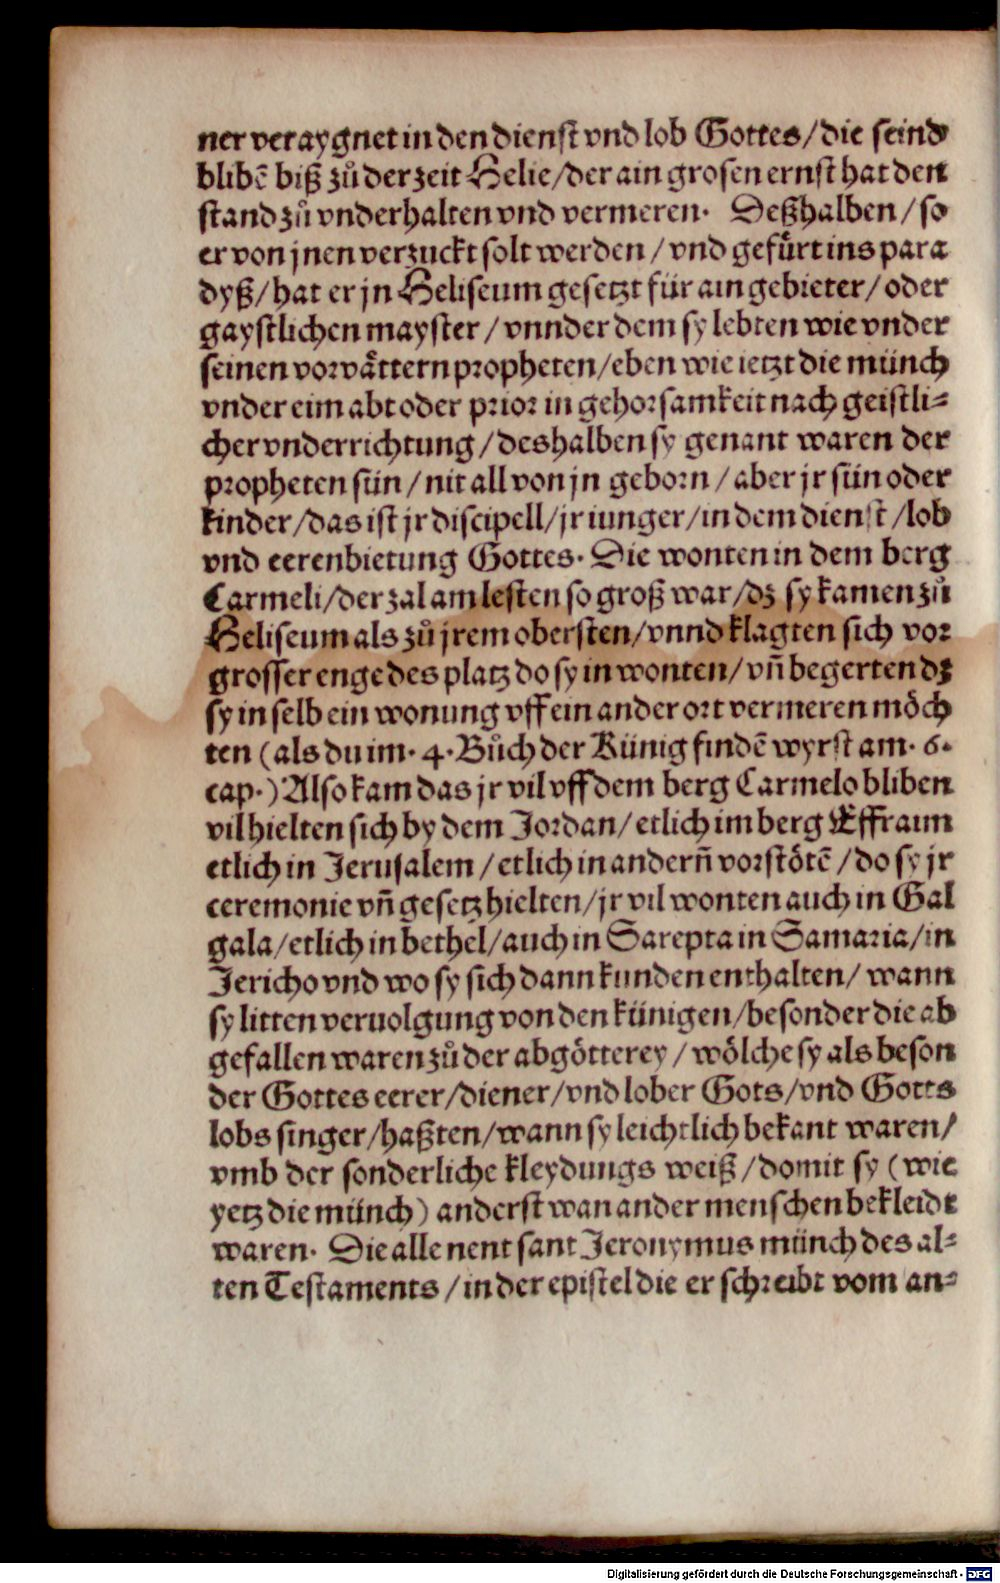 ner veraygnet in den dienst vnd lob Gottes/die seind
blibē biß zů der zeit Helie/der ain grosen ernst hat den
stand zů vnderhalten vnd vermeren. Deßhalben/so
er von jnen verzuckt solt werden/vnd gefuͤrt ins para
dyß/hat er jn Heliseum gesetzt für ain gebieter/oder
gaystlichen mayster/vnnder dem sy lebten wie vnder
seinen vorvåttern propheten/eben wie ietzt die münch
vnder eim abt oder prior in gehorsamkeit nach geistli-
cher vnderrichtung/deshalben sy genant waren der
propheten sün/nit all von jn geborn/aber jr sün oder
kinder/das ist jr discipell/jr iunger/in dem dienst/lob
vnd eerenbietung Gottes. Die wonten in dem berg
Carmeli/der zal am lesten so groß war/dz sy kamen zů
Heliseum als zů jrem obersten/vnnd klagten sich vor
grosser enge des platz do sy in wonten/vn̄ begerten dz
sy in selb ein wonung vff ein ander ort vermeren moͤch
ten (als du im. 4. Bůch der Künig findē wyrst am. 6.
cap.) Also kam das jr vil vff dem berg Carmelo bliben
vil hielten sich by dem Jordan/etlich im berg Effraim
etlich in Jerusalem/etlich in andern̄ vorstoͤtē/do sy jr
ceremonie vn̄ gesetz hielten/jr vil wonten auch in Gal
gala/etlich in bethel/auch in Sarepta in Samaria/in
Jericho vnd wo sy sich dann kunden enthalten/wann
sy litten veruolgung von den künigen/besonder die ab
gefallen waren zů der abgoͤtterey/woͤlche sy als beson
der Gottes eerer/diener/vnd lober Gots/vnd Gotts
lobs singer/haßten/wann sy leichtlich bekant waren/
vmb der sonderliche kleydungs weiß/domit sy (wie
yetz die münch) anderst wan ander menschen bekleidt
waren. Die alle nent sant Jeronymus münch des al-
ten Testaments/in der epistel die er schreibt vom an-
Digitalisierung gefördert durch die Deutsche Forschungsgemeinschaft - DFG